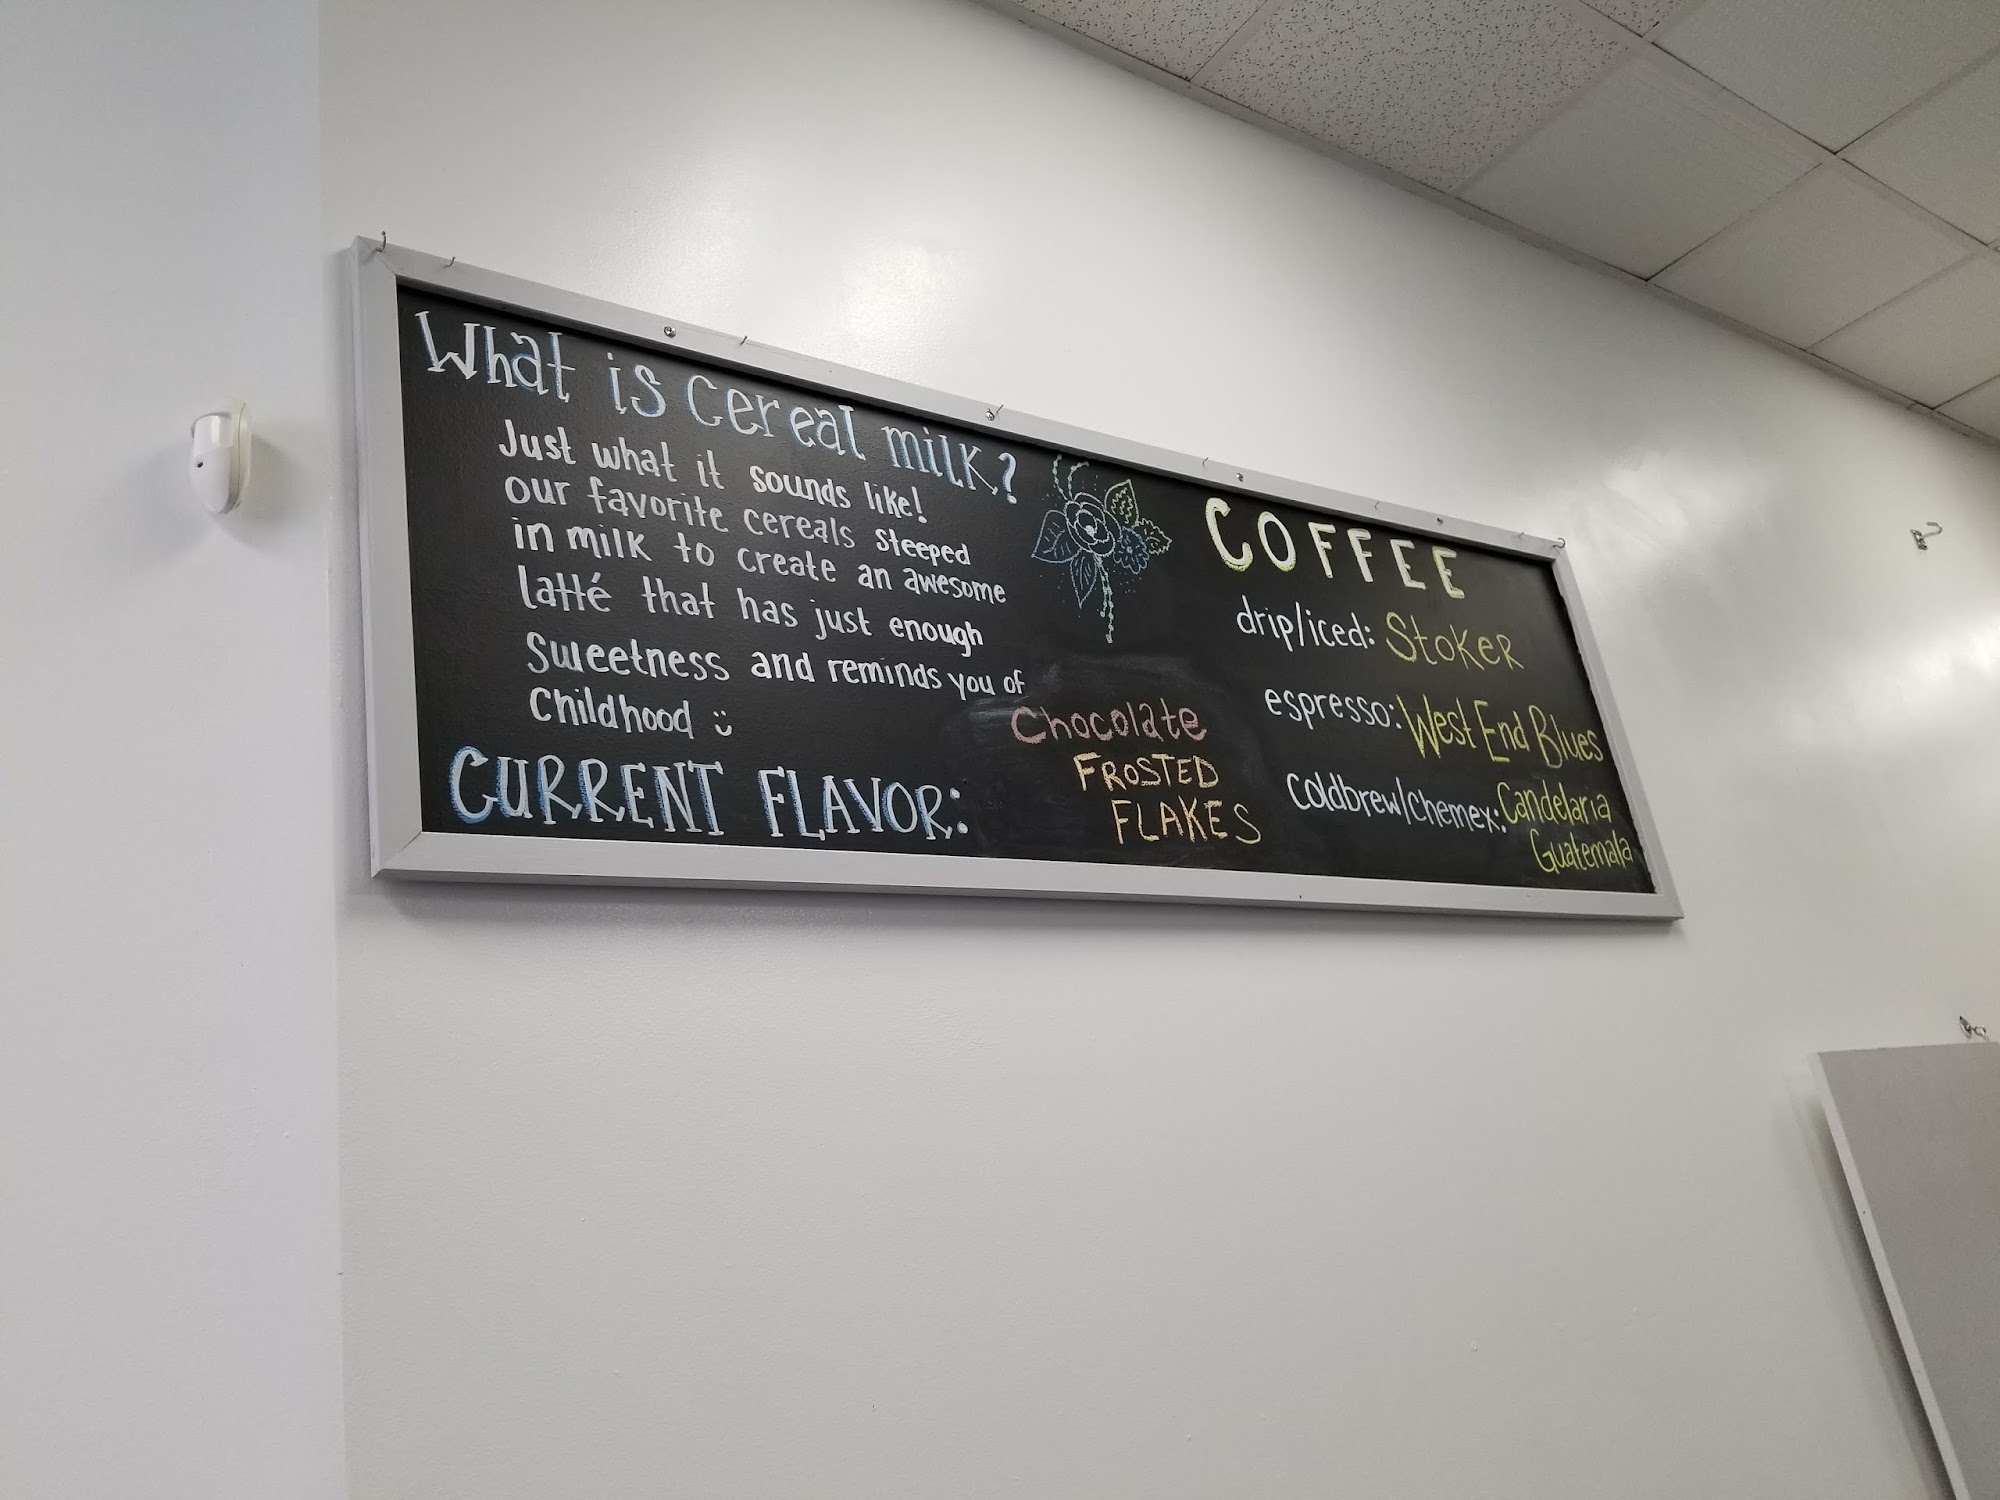 What is cereal milk?
Just what it sounds like!
our favorite cereals steeped
in milk to create an awesome
latté that has just enough
sweetness and reminds you of
Childhood
CURRENT FLAVOR:
Chocolate
FROSTED
FLAKES
COFFEE
drip/iced: Stoker
espresso: West End Blues
coldbrew/chemex: Candelaria
Guatemala